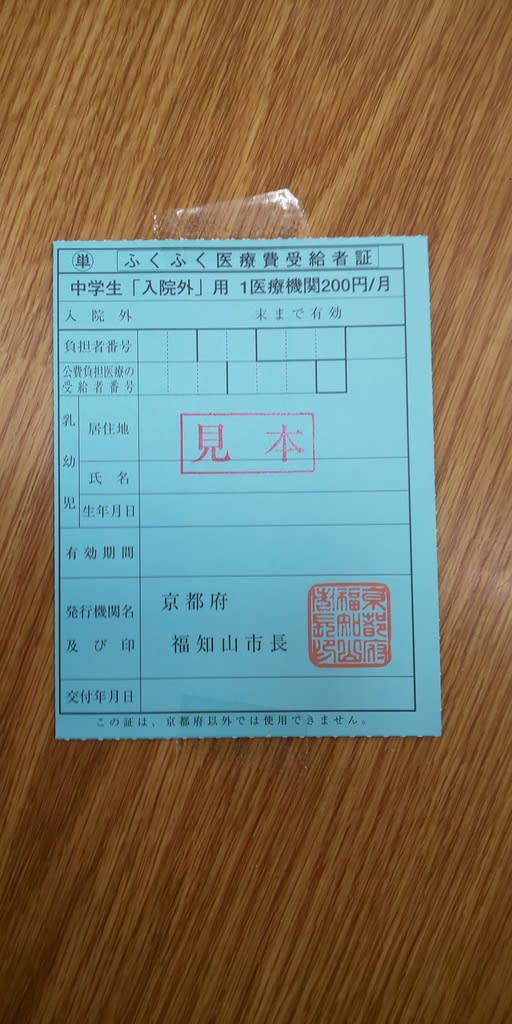 単 ふくふく医療費受給者証
中学生「入院外」用 1医療機関200円/月
入院外 末まで有効
負担者番号
公費負担医療の
受給者番号
乳幼児
居住地
見本
氏名
生年月日
有効期間
発行機関名
及び印
京都府
福知山市長
京都府
福知山
市長印
交付年月日
この証は、京都府以外では使用できません。